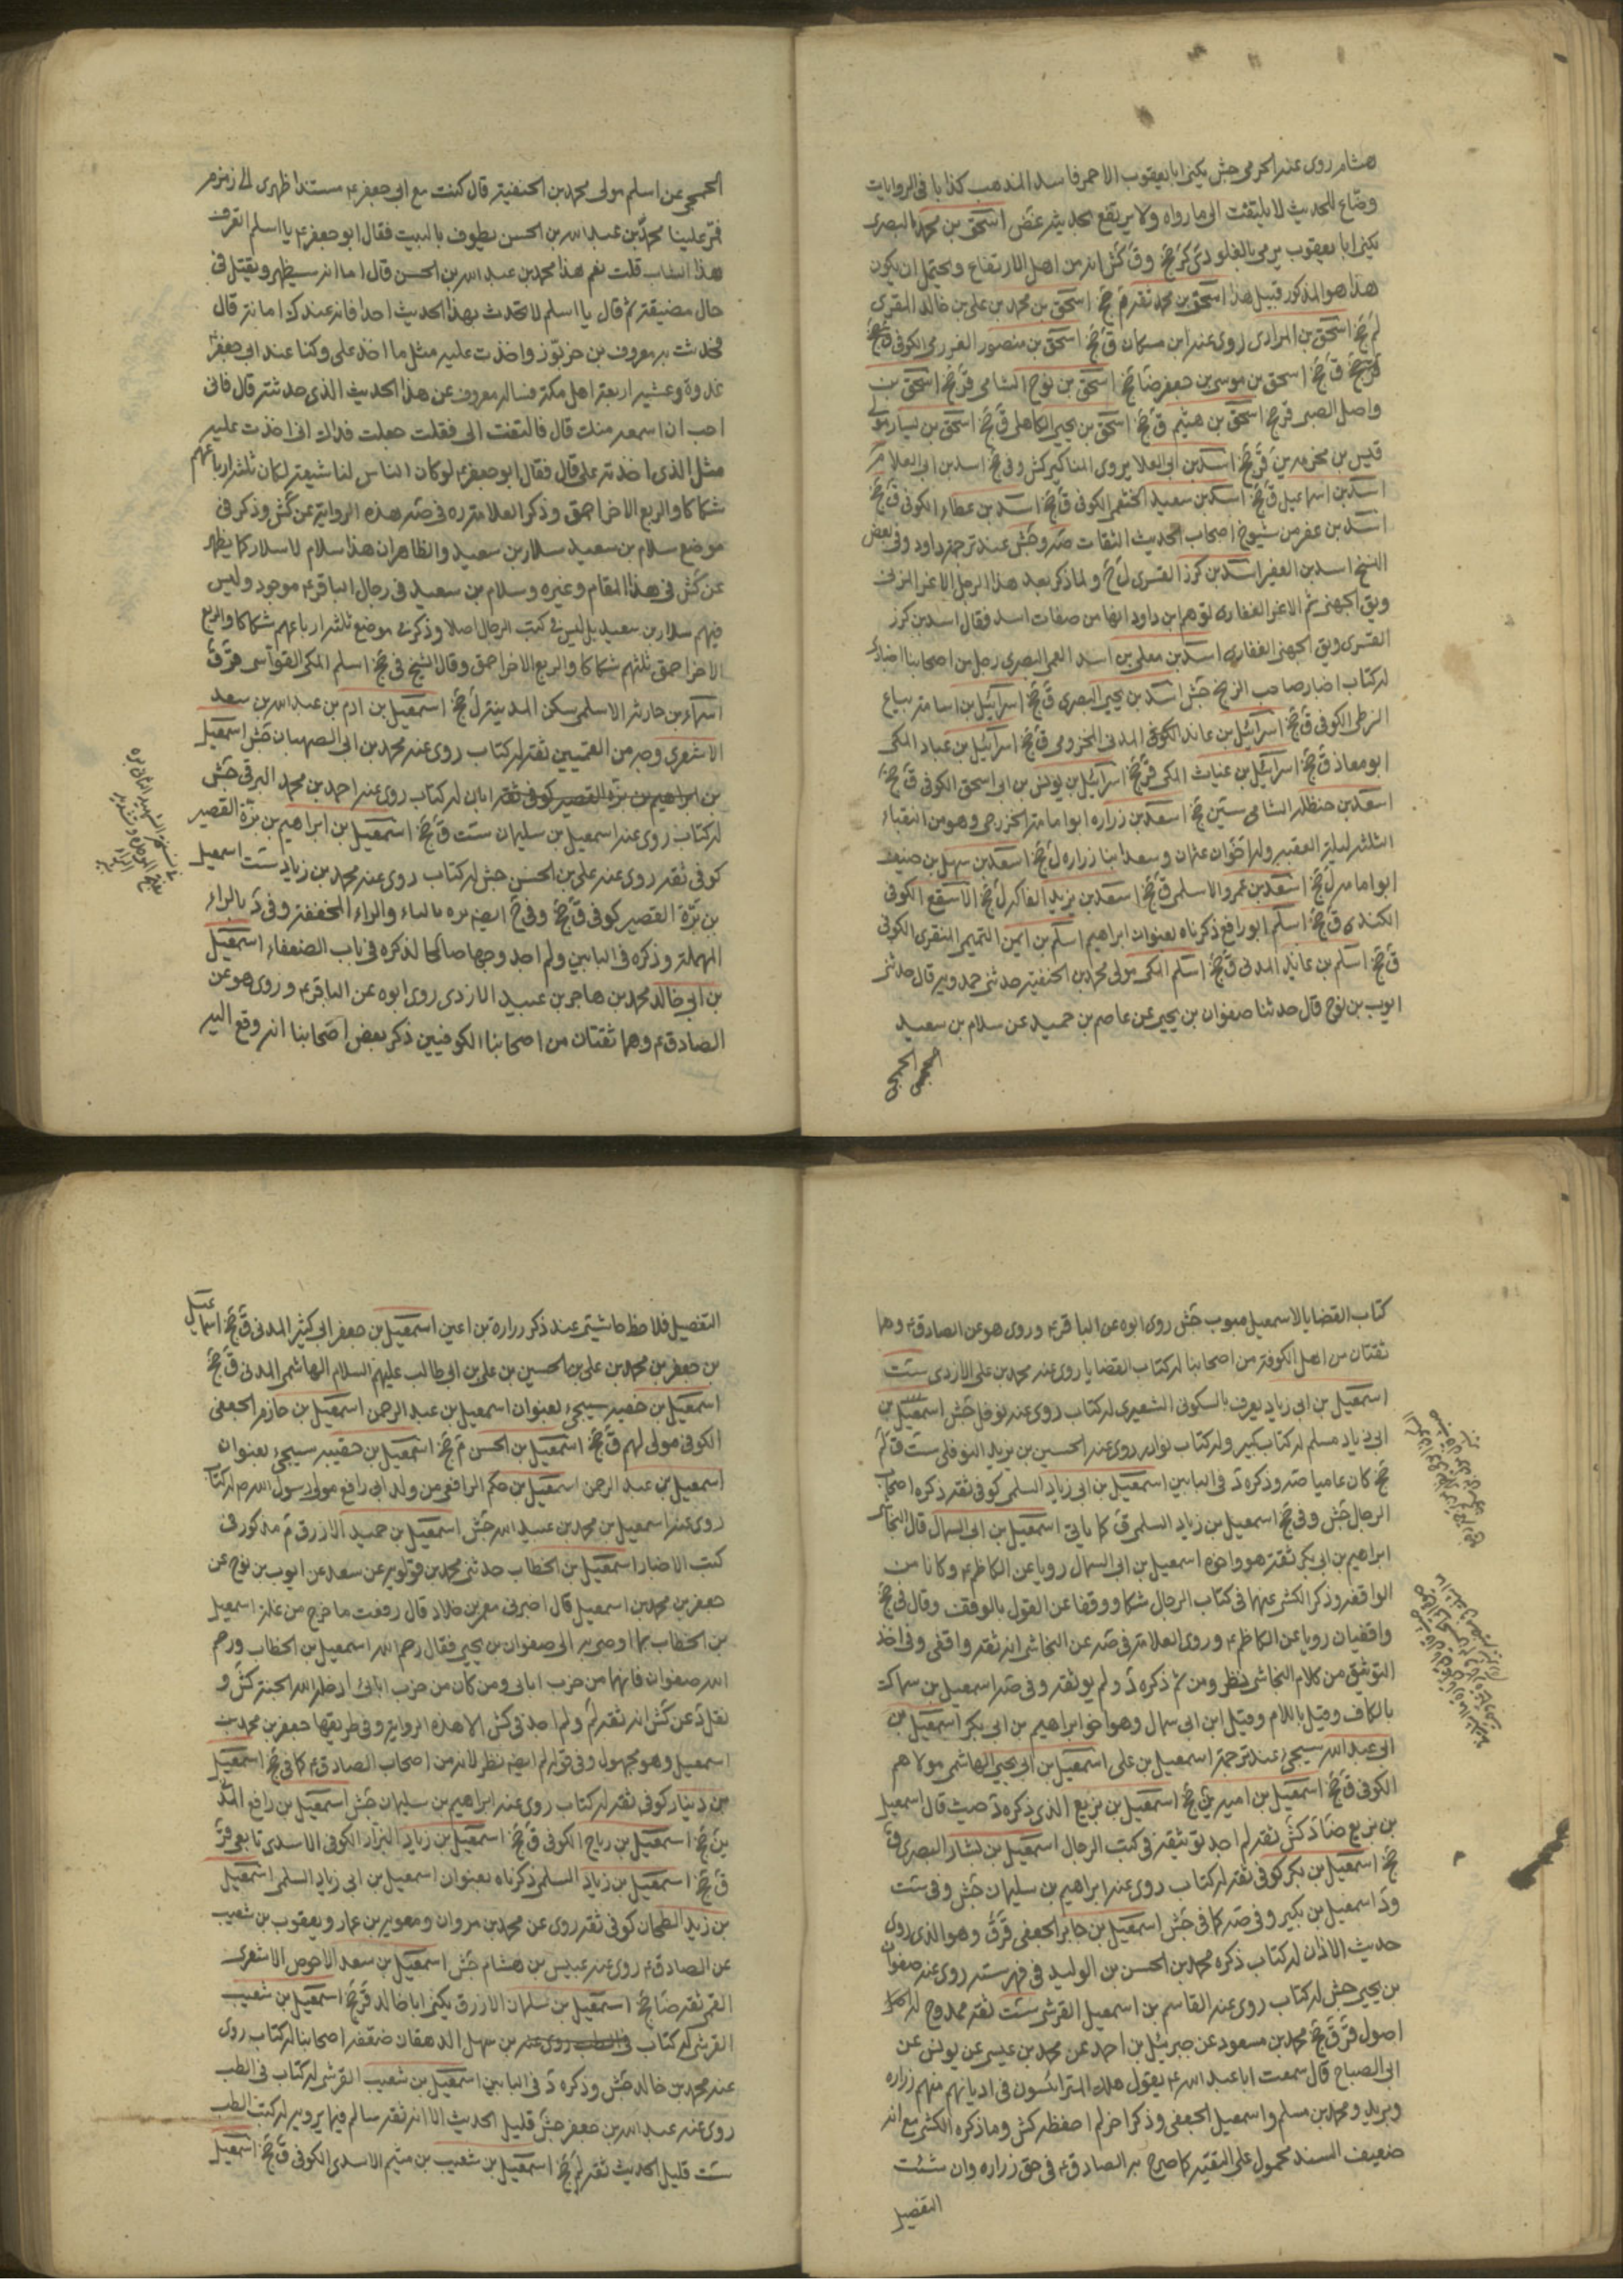 هشام روى عنه الجرمى جش يكنى ابا يعقوب الاحمر فاسد المذهب كذاب فى الروايات
وضاع للحديث لا يلتفت الى ما رواه ولا يرتفع بحديثه غض اسحق بن محمد البصرى
يكنى ابا يعقوب يرمى بالغلو دى كر جخ وفى كش انه من اهل الارتفاع ويحتمل ان يكون
هذا هو المذكور قبيل هذا اسحق بن محمد ثقة م جخ اسحق بن محمد بن على بن خالد المقرى
لم جخ اسحق بن المرادى روى عنه ابن مسكان ق جخ اسحق بن منصور العزرمى الكوفى
ق جخ اسحق بن موسى بن جعفر ضا جخ اسحق بن نوح الشامى قر جخ اسحق بن
واصل الضبى قر جخ اسحق بن هيثم ق جخ اسحق بن يحيى الكاهلى ق جخ اسحق بن يسار مولى
قيس بن مخرمه ين قر جخ اسد بن ابى العلا يروى المناكير كش وفى جخ اسد بن ابى العلا م
اسد بن اسماعيل ق جخ اسد بن سعيد الخثعمى الكوفى ق جخ اسد بن عطاء الكوفى ق جخ
اسد بن عفر من شيوخ اصحاب الحديث الثقات صه وجش عند ترجمة داود وفى بعض
النسخ اسد بن العفير اسد بن كرز القسرى ل جخ ولما ذكر بعد هذا الرجل الاغر المزنى
ويق الجهنى ثم الاغر الغفارى توهم ابن داود انها من صفات اسد فقال اسد بن كرز
القسرى ويق الجهنى الغفارى اسد بن معلى بن اسد العمى البصرى رجل من اصحابنا اخبارى
له كتاب اخبار صاحب الزنج جش اسد بن يحيى البصرى ق جخ اسرائيل بن اسامة بياع
الزطى الكوفى ق جخ اسرائيل بن عائذ الكوفى المدنى المخزومى ق جخ اسرائيل بن عباد المكى
ابو معاذ ق جخ اسرائيل بن غياث المكى قر جخ اسرائيل بن يونس بن ابى اسحق الكوفى ق جخ
اسعد بن حنظله الشامى سين جخ اسعد بن زراره ابو امامة الخزرجى وهو من النقباء
الثلثة ليلة العقبه وله اخوان عثمان وسعد ابنا زراره ل جخ اسعد بن سهل بن حنيف
ابو امامه ل جخ اسعد بن عمرو الاسلمى ق جخ اسعد بن يزيد الفاكه ل جخ الاسقع الكوفى
الكندى ق جخ اسلم ابو رافع ذكرناه بعنوان ابراهيم اسلم بن ايمن التميمى المنقرى الكوفى
ق جخ اسلم بن عائذ المدنى ق جخ اسلم المكى مولى محمد بن الحنفيه حدثنى حمدويه قال حدثنى
ايوب بن نوح قال حدثنا صفوان بن يحيى عن عاصم بن حميد عن سلام بن سعيد
الجمحى
الجمحى عن اسلم مولى محمد بن الحنفية قال كنت مع ابى جعفر ع مستندا ظهرى الى زمزم
فمر علينا محمد بن عبد الله بن الحسن يطوف بالبيت فقال ابو جعفر ع يا اسلم اتعرف
هذا الشاب قلت نعم هذا محمد بن عبد الله بن الحسن قال اما انه سيظهر ويقتل فى
حال مضيقة ثم قال يا اسلم لا تحدث بهذا الحديث احدا فانه عندك امانة قال
فحدثت به معروف بن خربوز واخذت عليه مثل ما اخذ على وكنا عند ابى جعفر
غدوة وعشيه اربعة اهل مكة فساله معروف عن هذا الحديث الذى حدثته قال فانى
احب ان اسمعه منك قال فالتفت الى فقلت جعلت فداك انى اخذت عليه
مثل الذى اخذته على قال فقال ابو جعفر ع لو كان الناس لنا شيعة لكان ثلثه ارباعهم
شكاكا والربع الاخر احمق وذكر العلامة ره فى صه هذه الرواية عن كش وذكر فى
موضع سلام بن سعيد سلار بن سعيد والظاهر ان هذا سلام لا سلار كما يظهر
عن كش فى هذا المقام وغيره وسلام بن سعيد فى رجال الباقر ع موجود وليس
فيهم سلار بن سعيد بل ليس فى كتب الرجال اصلا وذكر فى موضع ثلثه ارباعهم شكاكا والربع
الاخر احمق ثلثهم شكاكا والربع الاخر احمق وقال الشيخ فى جخ اسلم المكى القواس قر ق
اسماء بن حارثه الاسلمى سكن المدينة ل جخ اسمعيل بن ادم بن عبد الله بن سعد
الاشعرى وجه من القميين ثقة له كتاب روى عنه محمد بن ابى الصهبان جش اسمعيل
بن ابراهيم بن بزة القصير كوفى ثقة ابان له كتاب روى عنه احمد بن محمد البرقى جش
له كتاب روى عنه اسمعيل بن سليمان ست ق جخ اسمعيل بن ابراهيم بن بزة القصير
كوفى ثقة روى عنه على بن الحسن جش له كتاب روى عنه محمد بن زياد ست اسمعيل
بن بزة القصير كوفى ق جخ وفى ح ايضا بره بالباء والراء المخففة وفى د بالراء
المهملة وذكره فى البابين ولم اجد وجها صالحا لذكره فى باب الضعفاء اسمعيل
بن ابى خالد محمد بن هاجر بن عبيد الازدى روى ابوه عن الباقر ع وروى هو عن
الصادق ع وهما ثقتان من اصحابنا الكوفيين ذكر بعض اصحابنا انه وقع اليه
كتاب القضايا لاسمعيل مبوب جش روى ابوه عن الباقر ع وروى هو عن الصادق ع وهما
ثقتان من اهل الكوفة من اصحابنا له كتاب القضايا روى عنه محمد بن على الازدى ست
اسمعيل بن ابى زياد يعرف بالسكونى الشعيرى له كتاب روى عنه نوفل جش اسمعيل بن
ابى زياد مسلم له كتاب كبير وله كتاب نوادر روى عنه الحسين بن يزيد النوفلى ست ق لم
جخ كان عاميا صه وذكره د فى البابين اسمعيل بن ابى زياد السلمى كوفى ثقة ذكره اصحاب
الرجال جش وفى جخ اسمعيل بن زياد السلمى ق كما ياتى اسمعيل بن ابى السمال قال النجاشى
ابراهيم بن ابى بكر ثقة هو واخوه اسمعيل بن ابى السمال رويا عن الكاظم ع وكانا من
الواقفه وذكر الكشى عنهما فى كتاب الرجال شكا ووقفا عن القول بالوقف وقال فى جخ
واقفيان رويا عن الكاظم ع وروى العلامة فى صه عن النجاشى انه ثقة واقفى وفى اخذ
التوثيق من كلام النجاشى نظر ومن ثم ذكره د ولم يوثقه وفى صه اسمعيل بن سماك
بالكاف وقيل باللام وقيل ابن ابى سمال وهو اخو ابراهيم بن ابى بكر اسمعيل بن
ابى عبد الله سيجئ عند ترجمة اسمعيل بن على اسمعيل بن ابى يحيى الهاشمى مولاهم
الكوفى ق جخ اسمعيل بن اميه ين جخ اسمعيل بن بزيع الذى ذكره د حيث قال اسمعيل
بن بزيع ضا د كش ثقة لم اجد توثيقه فى كتب الرجال اسمعيل بن بشار البصرى ق
جخ اسمعيل بن بكر كوفى ثقة له كتاب روى عنه ابراهيم بن سليمان جش وفى ست
ود اسمعيل بن بكير وفى صه كما فى جش اسمعيل بن جابر الجعفى قر ق وهو الذى روى
حديث الاذان له كتاب ذكره محمد بن الحسن بن الوليد فى فهرسته روى عنه صفوان
بن يحيى جش له كتاب روى عنه القاسم بن اسمعيل القرشى ست ثقة ممدوح له
اصول قر ق جخ محمد بن مسعود عن جبرئيل بن احمد عن محمد بن عيسى عن يونس عن
ابى الصباح قال سمعت ابا عبد الله ع يقول هلك المترائسون فى اديانهم منهم زراره
وبريد ومحمد بن مسلم واسمعيل الجعفى وذكر اخر لم احفظه كش وما ذكره الكشى مع انه
ضعيف السند محمول على التقيه كما صرح به الصادق ع فى حق زراره وان شئت
التفصيل
التفصيل فلاحظ حاشيتى عند ذكر زرارة بن اعين اسمعيل بن جعفر ابى كثير المدنى ق جخ اسماعيل
بن جعفر بن محمد بن على بن الحسين بن على بن ابى طالب عليهم السلام الهاشمى المدنى ق جخ
اسمعيل بن حفيه سيجئ بعنوان اسمعيل بن عبد الرحمن اسمعيل بن حازم الجعفى
الكوفى مولى لهم ق جخ اسمعيل بن الحسن م جخ اسمعيل بن حقيبه سيجئ بعنوان
اسمعيل بن عبد الرحمن اسمعيل بن حكم الرافعى من ولد ابى رافع مولى رسول الله ص له كتاب
روى عنه اسمعيل بن محمد بن عبيد الله جش اسمعيل بن حميد الازرق م مذكور فى
كتب الاخبار اسمعيل بن الخطاب حدثنى محمد بن قولويه عن سعد عن ايوب بن نوح عن
جعفر بن محمد بن اسمعيل قال اخبرنى معمر بن خلاد قال رفعت ما خرج من غلة اسمعيل
بن الخطاب بما اوصى به الى صفوان بن يحيى فقال رحم الله اسمعيل بن الخطاب ورحم
الله صفوان فانهما من حزب ابائى ومن كان من حزب ابائى ادخله الله الجنة كش و
نقل د عن كش انه ثقة لم ولم اجد فى كش الا هذه الرواية وفى طريقها جعفر بن محمد بن
اسمعيل وهو مجهول وفى قوله لم ايضا نظر لانه من اصحاب الصادق ع كما فى جخ اسمعيل
بن دينار كوفى ثقة له كتاب روى عنه ابراهيم بن سليمان جش اسمعيل بن رافع المدنى
ين جخ اسمعيل بن رياح الكوفى ق جخ اسمعيل بن زياد البزاز الكوفى الاسدى تابعى قر
ق جخ اسمعيل بن زياد السلمى ذكرناه بعنوان اسمعيل بن ابى زياد السلمى اسمعيل
بن زيد الطحان كوفى ثقة روى عن محمد بن مروان ومعوية بن عمار ويعقوب بن شعيب
عن الصادق ع روى عنه عبيس بن هشام جش اسمعيل بن سعد الاحوص الاشعرى
القمى ثقة ضا جخ اسمعيل بن سلمان الازرق يكنى ابا خالد قر جخ اسمعيل بن شعيب
القرشى له كتاب فى الطب روى عنه بن سهل الدهقان ضعفه اصحابنا له كتاب روى
عنه محمد بن خالد جش وذكره د فى البابين اسمعيل بن شعيب القرشى له كتاب فى الطب
روى عنه عبد الله بن جعفر جش قليل الحديث الا انه ثقة سالم فيما يرويه له كتب الطب
ست قليل الحديث ثقة لم جخ اسمعيل بن شعيب بن ميثم الاسدى الكوفى ق جخ اسمعيل